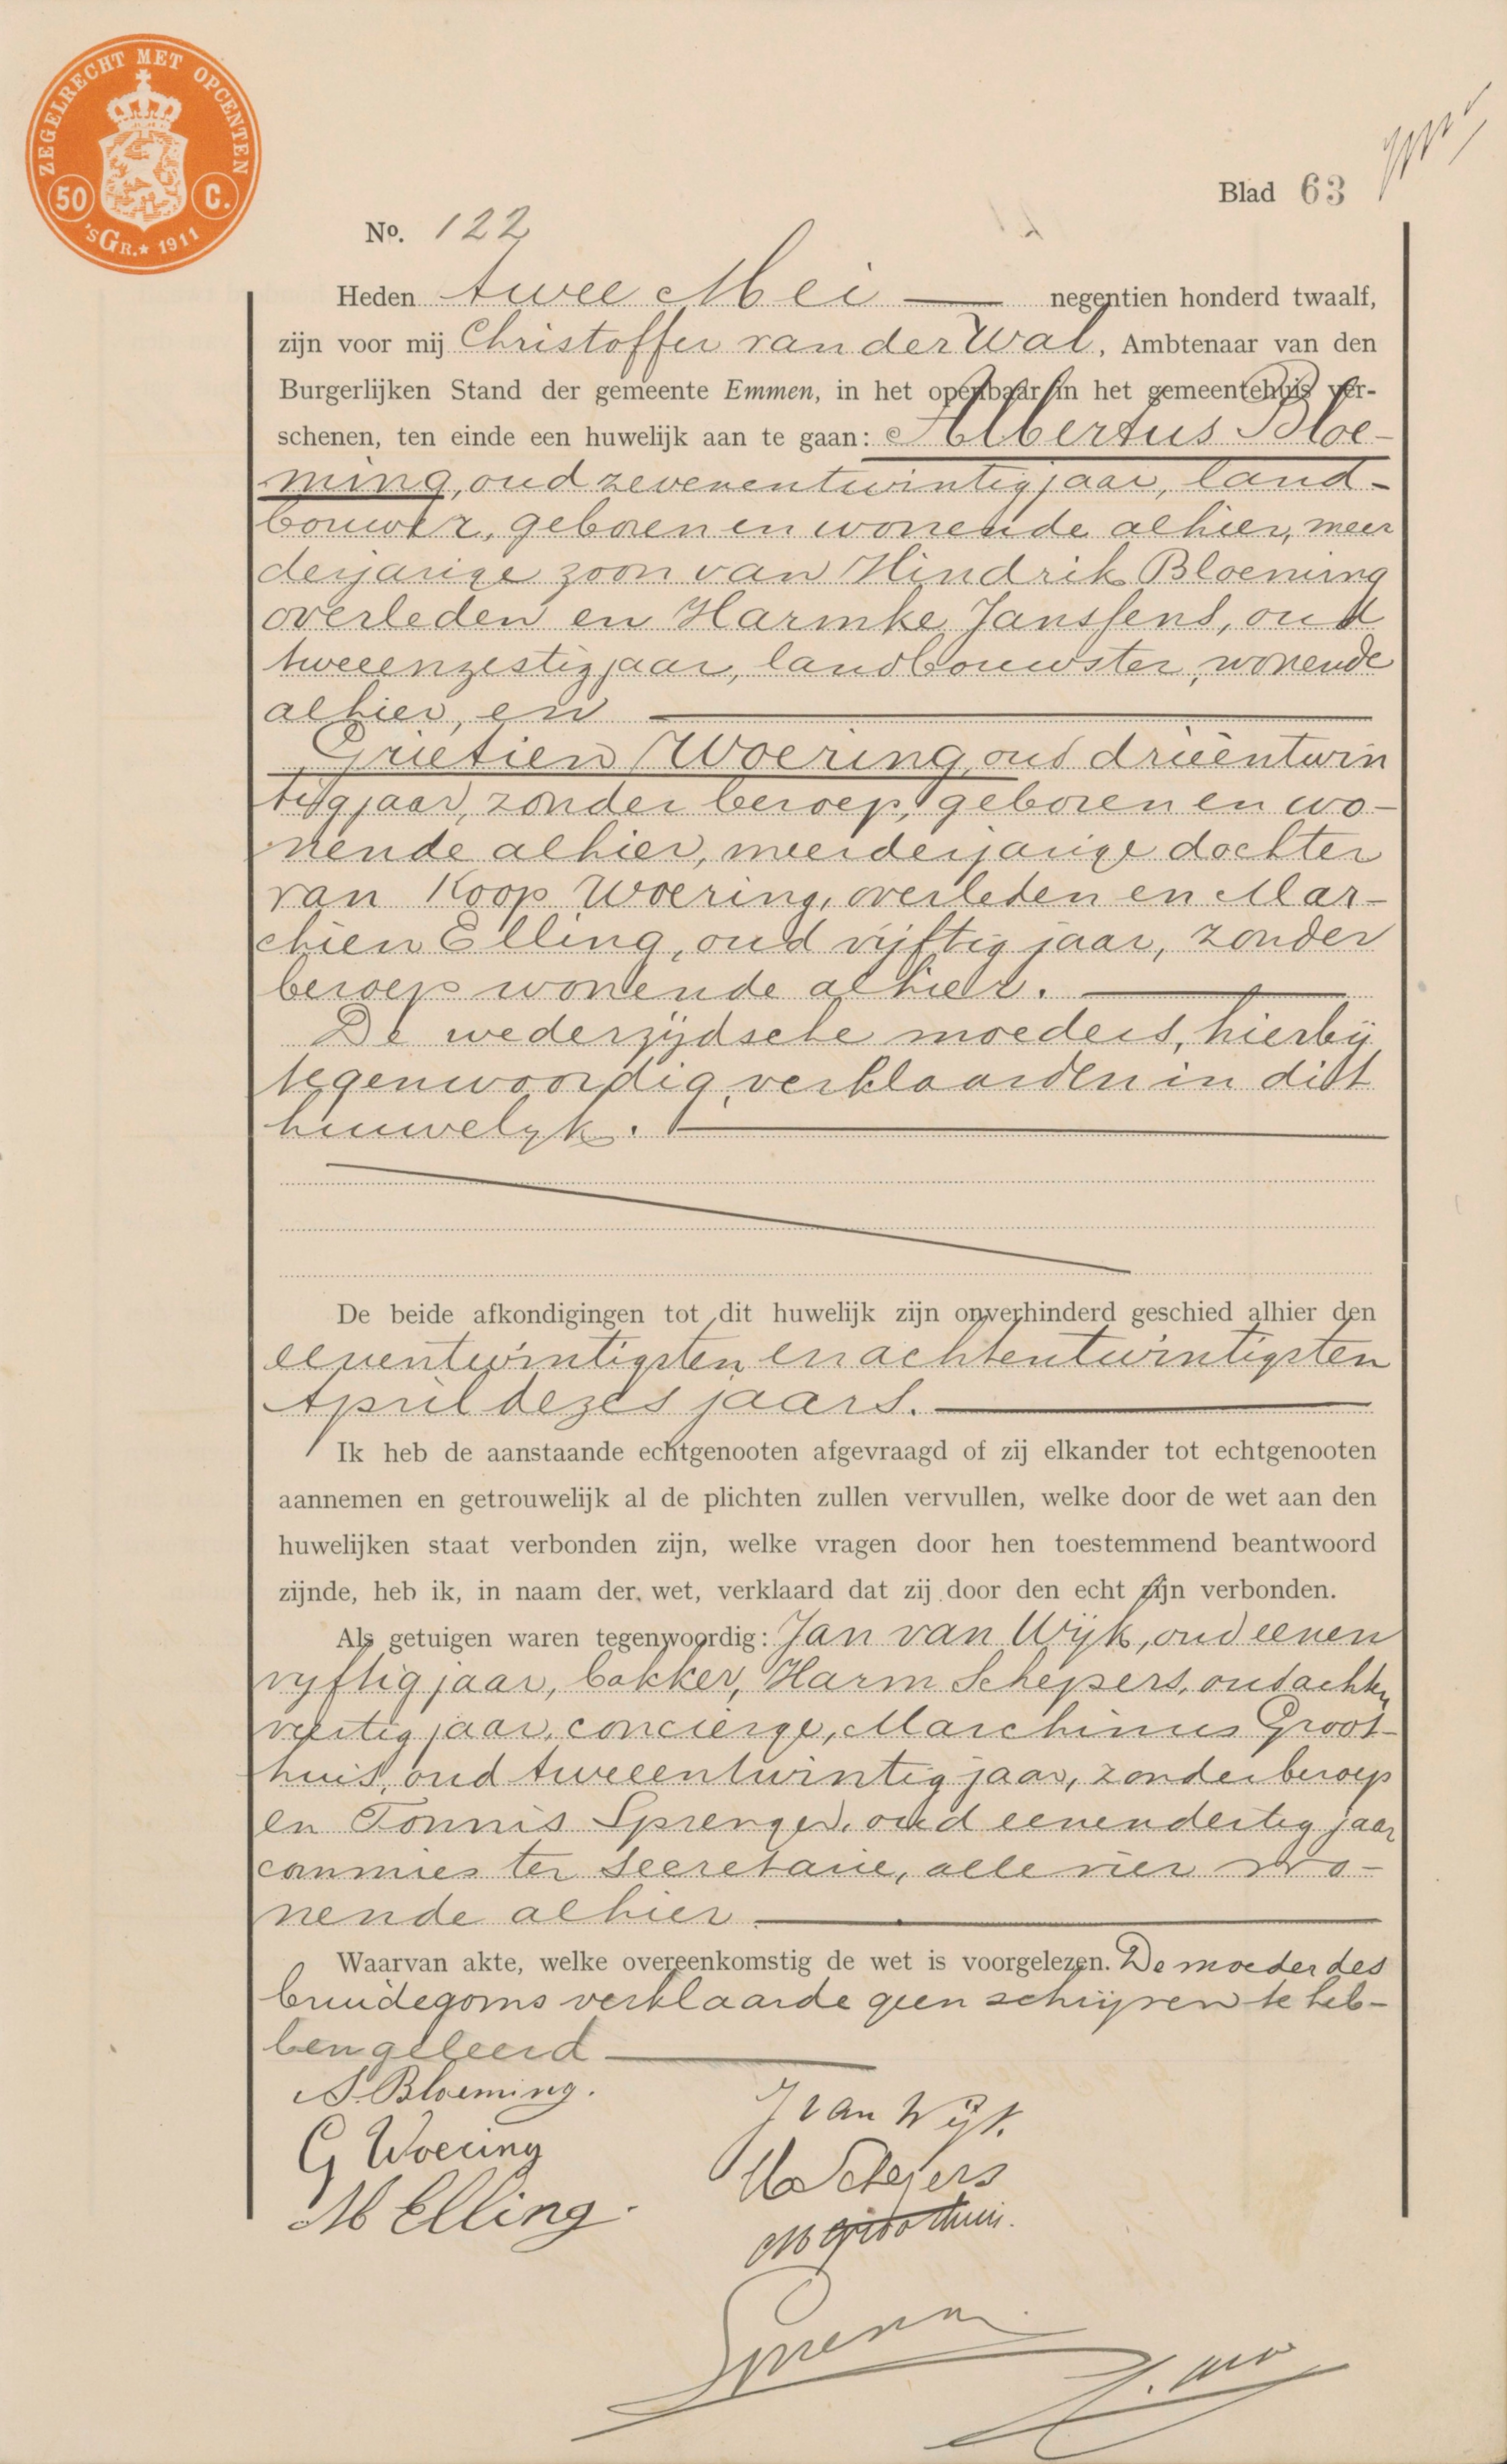 ZEGELRECHT MET OPCENTEN
50 C.
'SGR.★ 1911
Blad 63
No. 122
Heden twee Mei negentien honderd twaalf,
zijn voor mij Christoffer van der Wal, Ambtenaar van den
Burgerlijken Stand der gemeente Emmen, in het openbaar in het gemeentehuis ver-
schenen, ten einde een huwelijk aan te gaan: Albertus Bloe-
ming, oud zevenentwintig jaar, land-
bouwer, geboren en wonende alhier, meer
derjarige zoon van Hindrik Bloeming
overleden en Harmke Janssens, oud
tweeenzestig jaar, landbouwster, wonende
alhier, en
Grietien Woering, oud drieëntwin
tig jaar, zonder beroep, geboren en wo-
nende alhier, meerderjarige dochter
van Koop Woering, overleden en Mar-
chien Elling, oud vijftig jaar, zonder
beroep wonende alhier.
De wederzijdsche moeders, hierbij
tegenwoordig, verklaarden in dit
huwelijk.
De beide afkondigingen tot dit huwelijk zijn onverhinderd geschied alhier den
eenentwintigsten en achtentwintigsten
April dezes jaars.
Ik heb de aanstaande echtgenooten afgevraagd of zij elkander tot echtgenooten
aannemen en getrouwelijk al de plichten zullen vervullen, welke door de wet aan den
huwelijken staat verbonden zijn, welke vragen door hen toestemmend beantwoord
zijnde, heb ik, in naam der wet, verklaard dat zij door den echt zijn verbonden.
Als getuigen waren tegenwoordig: Jan van Wijk, oud eenen
vijftig jaar, bakker, Harm Schepers, oud achten
veertig jaar, concierge, Marchinus Groot-
huis, oud tweeentwintig jaar, zonder beroep
en Tonnis Sprenger, oud eenendertig jaar
commies ter secretarie, alle vier wo-
nende alhier.
Waarvan akte, welke overeenkomstig de wet is voorgelezen. De moeder des
bruidegoms verklaarde geen schrijven te heb-
ben geleerd
A. Bloeming.
J van Wijk.
G Woering
H Schepers
M Elling.
M Groothuis.